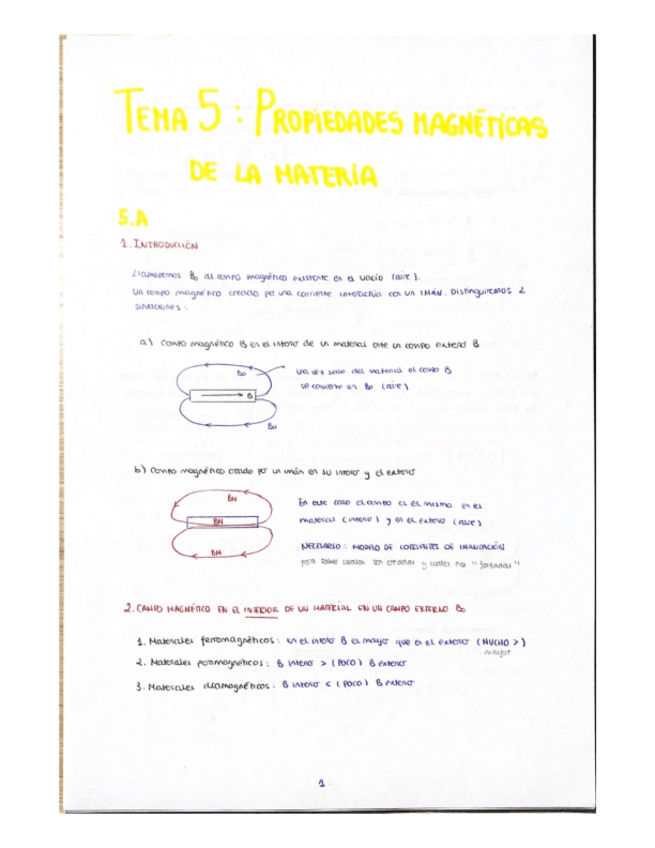 TEMA 5: PROPIEDADES MAGNÉTICAS
DE LA MATERIA
5.A
1. INTRODUCCIÓN
Llamaremos B₀ al campo magnético existente en el vacío (aire).
Un campo magnético creado por una corriente interactúa con un IMÁN. Distinguiremos 2
situaciones:
a) Campo magnético B en el interior de un material ante un campo externo B
B₀
B
B₀
una vez sale del material el campo B
se convierte en B₀ (aire)
b) Campo magnético creado por un imán en su interior y el exterior
BM
BM
BM
En este caso el campo es el mismo en el
material (interior) y en el exterior (aire)
NECESARIO: MODELO DE CORRIENTES DE IMANACIÓN
para saber cuales son creadas y cuales no "forzadas"
2. CAMPO MAGNÉTICO EN EL INTERIOR DE UN MATERIAL EN UN CAMPO EXTERNO B₀
1. Materiales ferromagnéticos: en el interior B es mayor que en el exterior (MUCHO >)
mayor
2. Materiales paramagnéticos: B interior > (POCO) B exterior
3. Materiales diamagnéticos: B interior < (POCO) B exterior
1